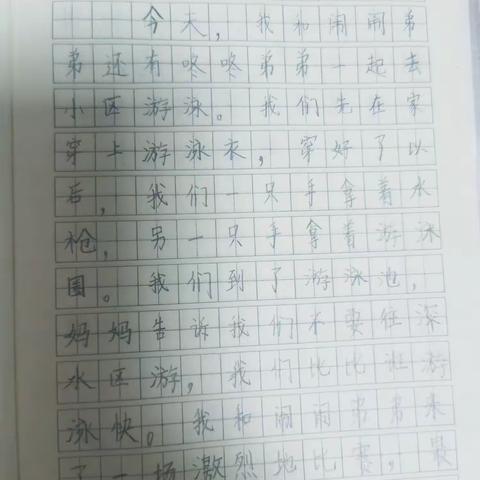 今天，我和闹闹弟
弟还有咚咚弟弟一起去
小区游泳。我们先在家
穿上游泳衣，穿好了以
后，我们一只手拿着水
枪，另一只手拿着游泳
圈。我们到了游泳池，
妈妈告诉我们不要往深
水区游，我们比比谁游
泳快。我和闹闹弟弟来
了一场激烈地比赛，最